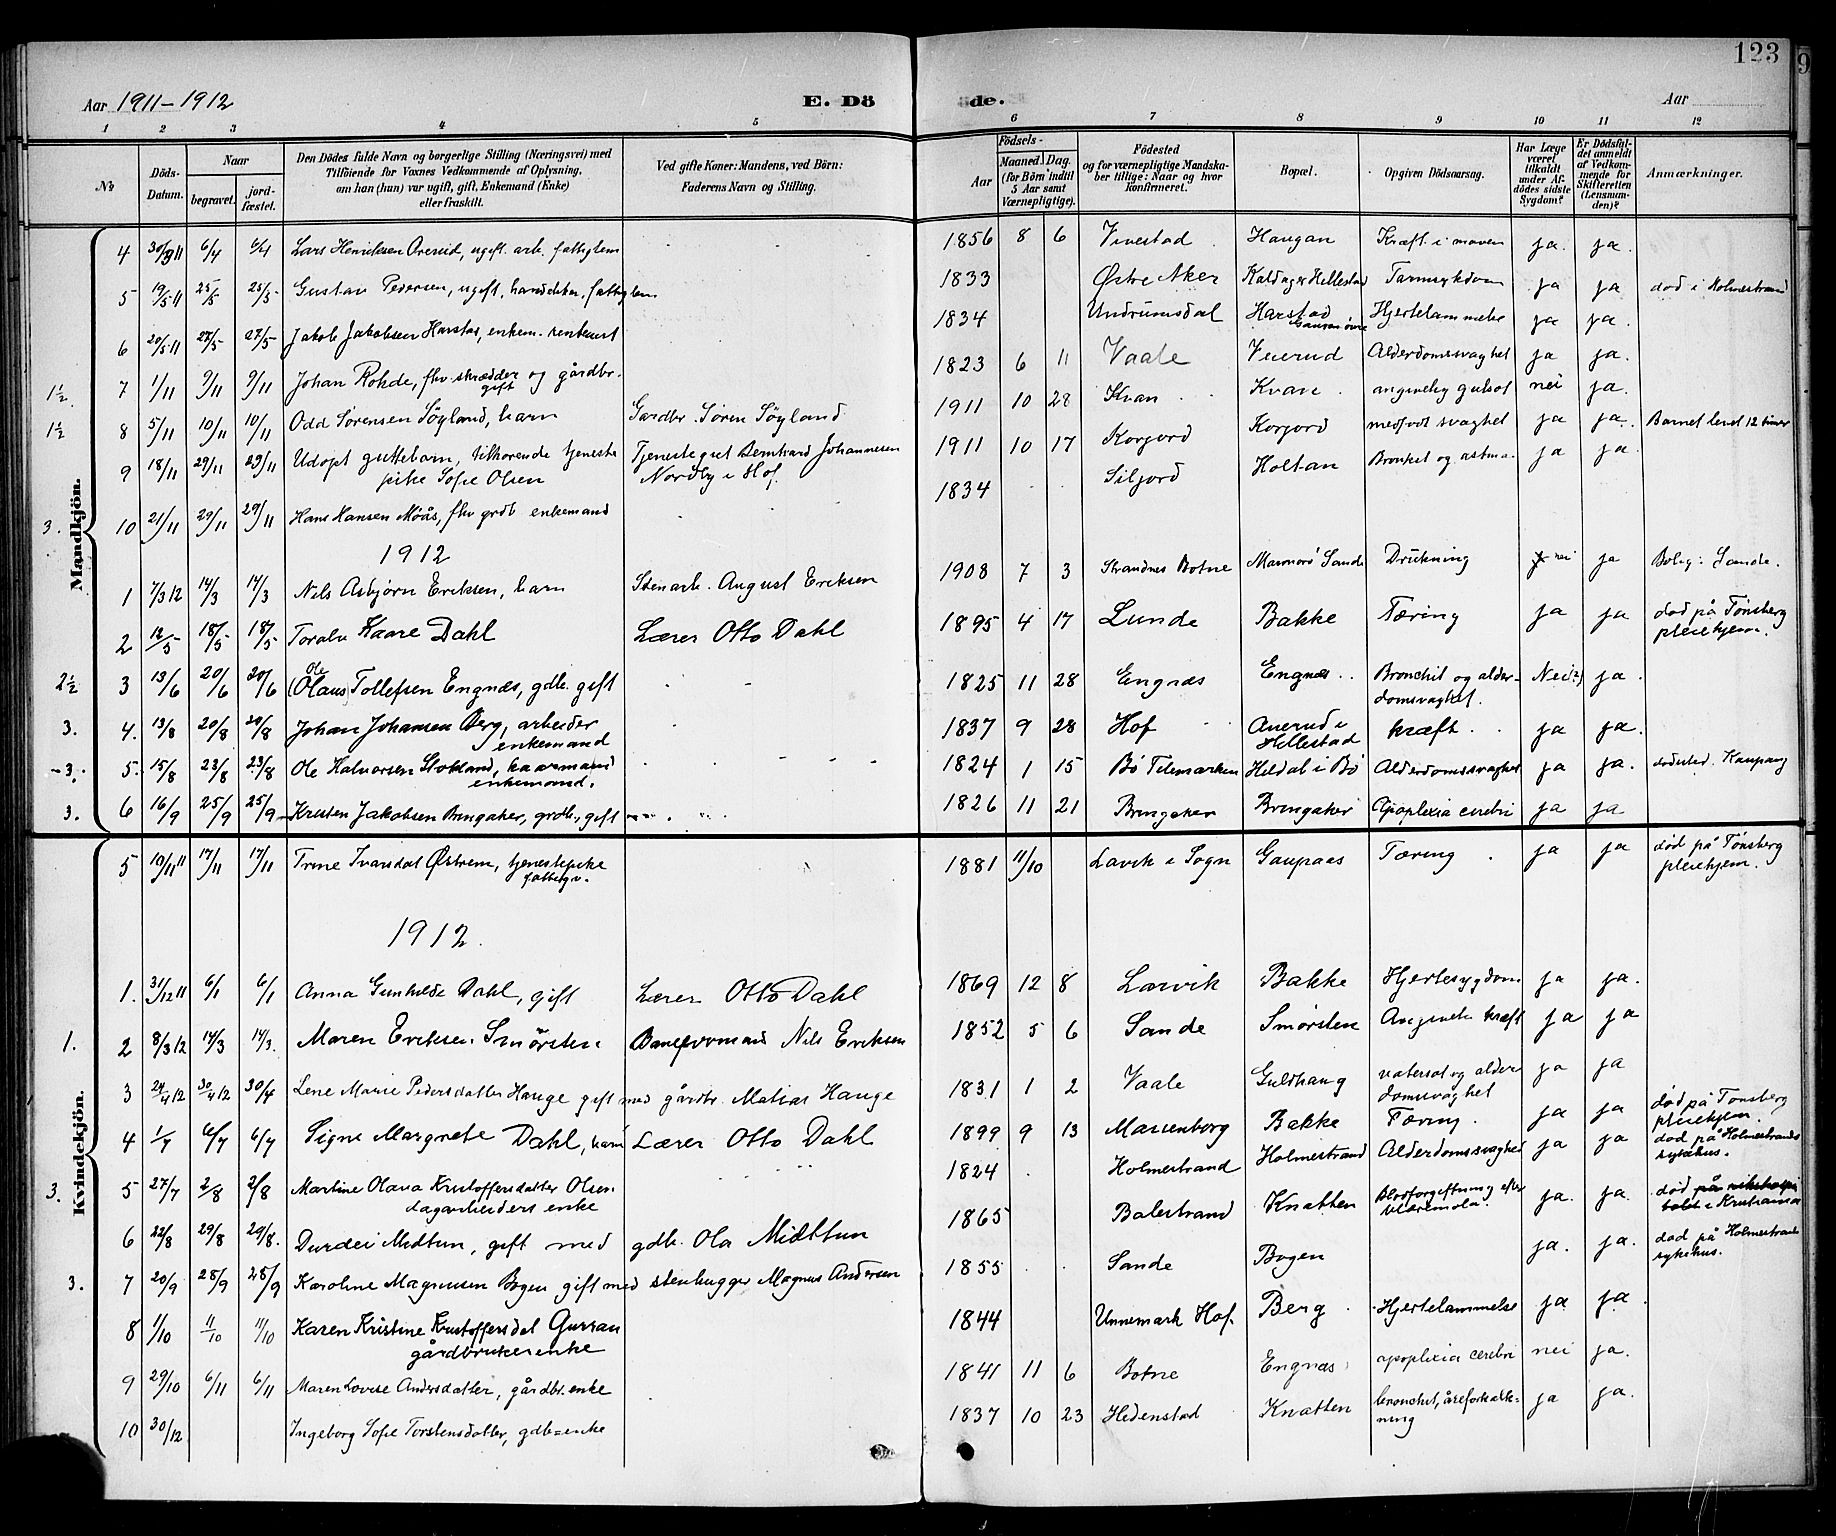 123
Aar 1911–1912
E. Dö
de.
Aar
1 2 3 4 5 6 7 8 9 10 11 12
№
Döds-Datum.
Naar
begravet.
jord-fæstet.
Den Dödes fulde Navn og borgerlige Stilling (Næringsvei) med
Tilföiende for Voxnes Vedkommende af Oplysning,
om han (hun) var ugift, gift, Enkemand (Enke)
eller fraskilt.
Ved gifte Koner: Mandens, ved Börn:
Faderens Navn og Stilling.
Födsels-
Aar
Maaned. Dag.
(for Börn indtil
5 Aar samt
Værnepligtige).
Födested
og for værnepligtige Mandska-
ber tillige: Naar og hvor
konfirmeret.
Bopæl.
Opgiven Dödsaarsag.
Har Læge
været
tilkaldt
under Af-
dödes sidste
Sygdom?
Er Dödsfal-
det anmeldt
af Vedkom-
mende for
Skifteretten
(Lensman-
den)?
Anmærkninger.
Mandkjön.
4 6/4 6/4 Lars Henriksen, ugift arb. fattiglem 1856 8 6 Vivestad Haugan Kræft i maven ja. ja.
5 19/5 11 25/5 25/5 Gustav Pedersen, ugift, fattiglem 1833 Østre Aker Hellestad Tarmsykdom ja ja død i Holmestrand
6 20/5 11 27/5 27/5 Jakob Jakobsen Harstad, enkem. 1834 Undrumsdal Harstad Hjertelammelse ja ja.
1½ 7 1/11 9/11 9/11 Johan Rohde, fhv. skrædder og gårdbr. gift 1823 6 11 Vaale Veierud Alderdomsvaghet ja ja.
1½ 8 5/11 10/11 10/11 Odd Sørensen Søyland, barn Gardbr. Søren Søyland 1911 10 28 Kvan Kvan gulsot nei ja.
9 18/11 29/11 29/11 Udøpt guttebarn, tilhørende tjeneste
pike Sofie Olsen Tjenestegut Bernthard Johannesen
Nordby i Hof. 1911 10 17 Korgord Korgord medfødt svaghet ja ja. Barnet levet 12 timer
3. 10 21/11 29/11 29/11 Hans Hansen Møås, fhv grdb enkemand 1834 Siljord Holtan Bronkit og astma ja ja.
1912
1 7/3 12 14/3 14/3 Nils Asbjørn Eriksen, barn Stenarb. August Eriksen 1908 7 3 Strandnes Botne Sande Drukning nei ja Bolig: Sande.
2 12/5 18/5 18/5 Toralv Kaare Dahl Lærer Otto Dahl 1895 4 17 Lunde Bakke Tæring ja ja død på Tønsberg
pleiehjem.
2½ 3 13/6 20/6 20/6 Ole
(Olaus Tollefsen Engnæs, gdb. gift 1825 11 28 Engnæs Engnæs Bronchit og alder-
domsvaghet. Nei(?) ja.
3. 4. 13/8 20/8 20/8 Johan Johansen Berg, arbeider
enkemand 1837 9 28 Hof Anerud i
Hellestad kræft. ja ja.
3. 5. 15/8 23/8 23/8 Ole Halvorsen Stokland,
enkemand. 1824 1 15 Bø Telemarken Heldal i Bø Alderdomssvaghet ja ja. dødsted. Kaupang
3. 6 16/9 25/9 25/9 Kristen Jakobsen Bringaker, grdb., gift 1826 11 21 Bringaker Bringaker Apoplexia cerebri ja ja
Kvindekjön.
5 10/11 11 17/11 17/11 Trine Ivarsdat Østrem, tjenestepike
fattigv. 1881 11/10 Lavik i Sogn Gaupaas Tæring. ja ja død på Tønsberg
pleiehjem.
1912.
1. 31/12 11 6/1 6/1 Anna Gunhilde Dahl, gift Lærer Otto Dahl 1869 12 8 Larvik Bakke Hjertesygdom ja ja.
1. 2 8/3 12 14/3 14/3. Maren Eriksen Smørsten Baneformand Nils Eriksen 1852 5 6 Sande Smørsten Angivelig kræft ja ja
3 24/4 12 30/4 12 30/4 Lene Marie Pedersdatter Hauge gift med gårdbr. Matias Hauge 1831 1 2 Vaale Guldhaug vatersot og alder
domsvaghet ja ja
4 1/7 6/7 6/7 Signe Margrete Dahl, barn Lærer Otto Dahl 1899 9 13 Marienborg Bakke Tæring. ja ja død på Tønsberg
pleiehjem
3. 5 27/7 2/8 2/8 Martine Olava Kristoffersdatter Olsen
dagarbeiders enke 1824 Holmestrand Holmestrand Alderdomssvaghed ja ja død på Holmestrands
sykehus.
6 22/8 29/8 29/8. Durdei Midtun, gift med gdb. Ola Midttun 1865 Balestrand Knatten Blodforgiftning efter ja. ja. død på
i Kristiania
3. 7 20/9 28/9 28/9 Karoline Magnusen Bogen gift med stenhugger Magnus Andersen 1855 Sande Bogen ja. ja. død på Holmestrand
sykehus.
8 1/10 11/10 11/10 Karen Kristine Kristoffersdat
gårdbrukerenke 1844 Unnemark Hof. Berg Hjertelammelse ja ja.
9 29/10 6/11 6/11 Maren Lovise Andersdatter, gårdbr. enke 1841 11 6 Botne Engnæs apoplexia cerebri nei ja.
10 30/12 Ingeborg Sofie Torstensdatter, gdb=enke 1837 10 23 Hedenstad Knatten bronchit, åreforkalk-
ning ja ja.